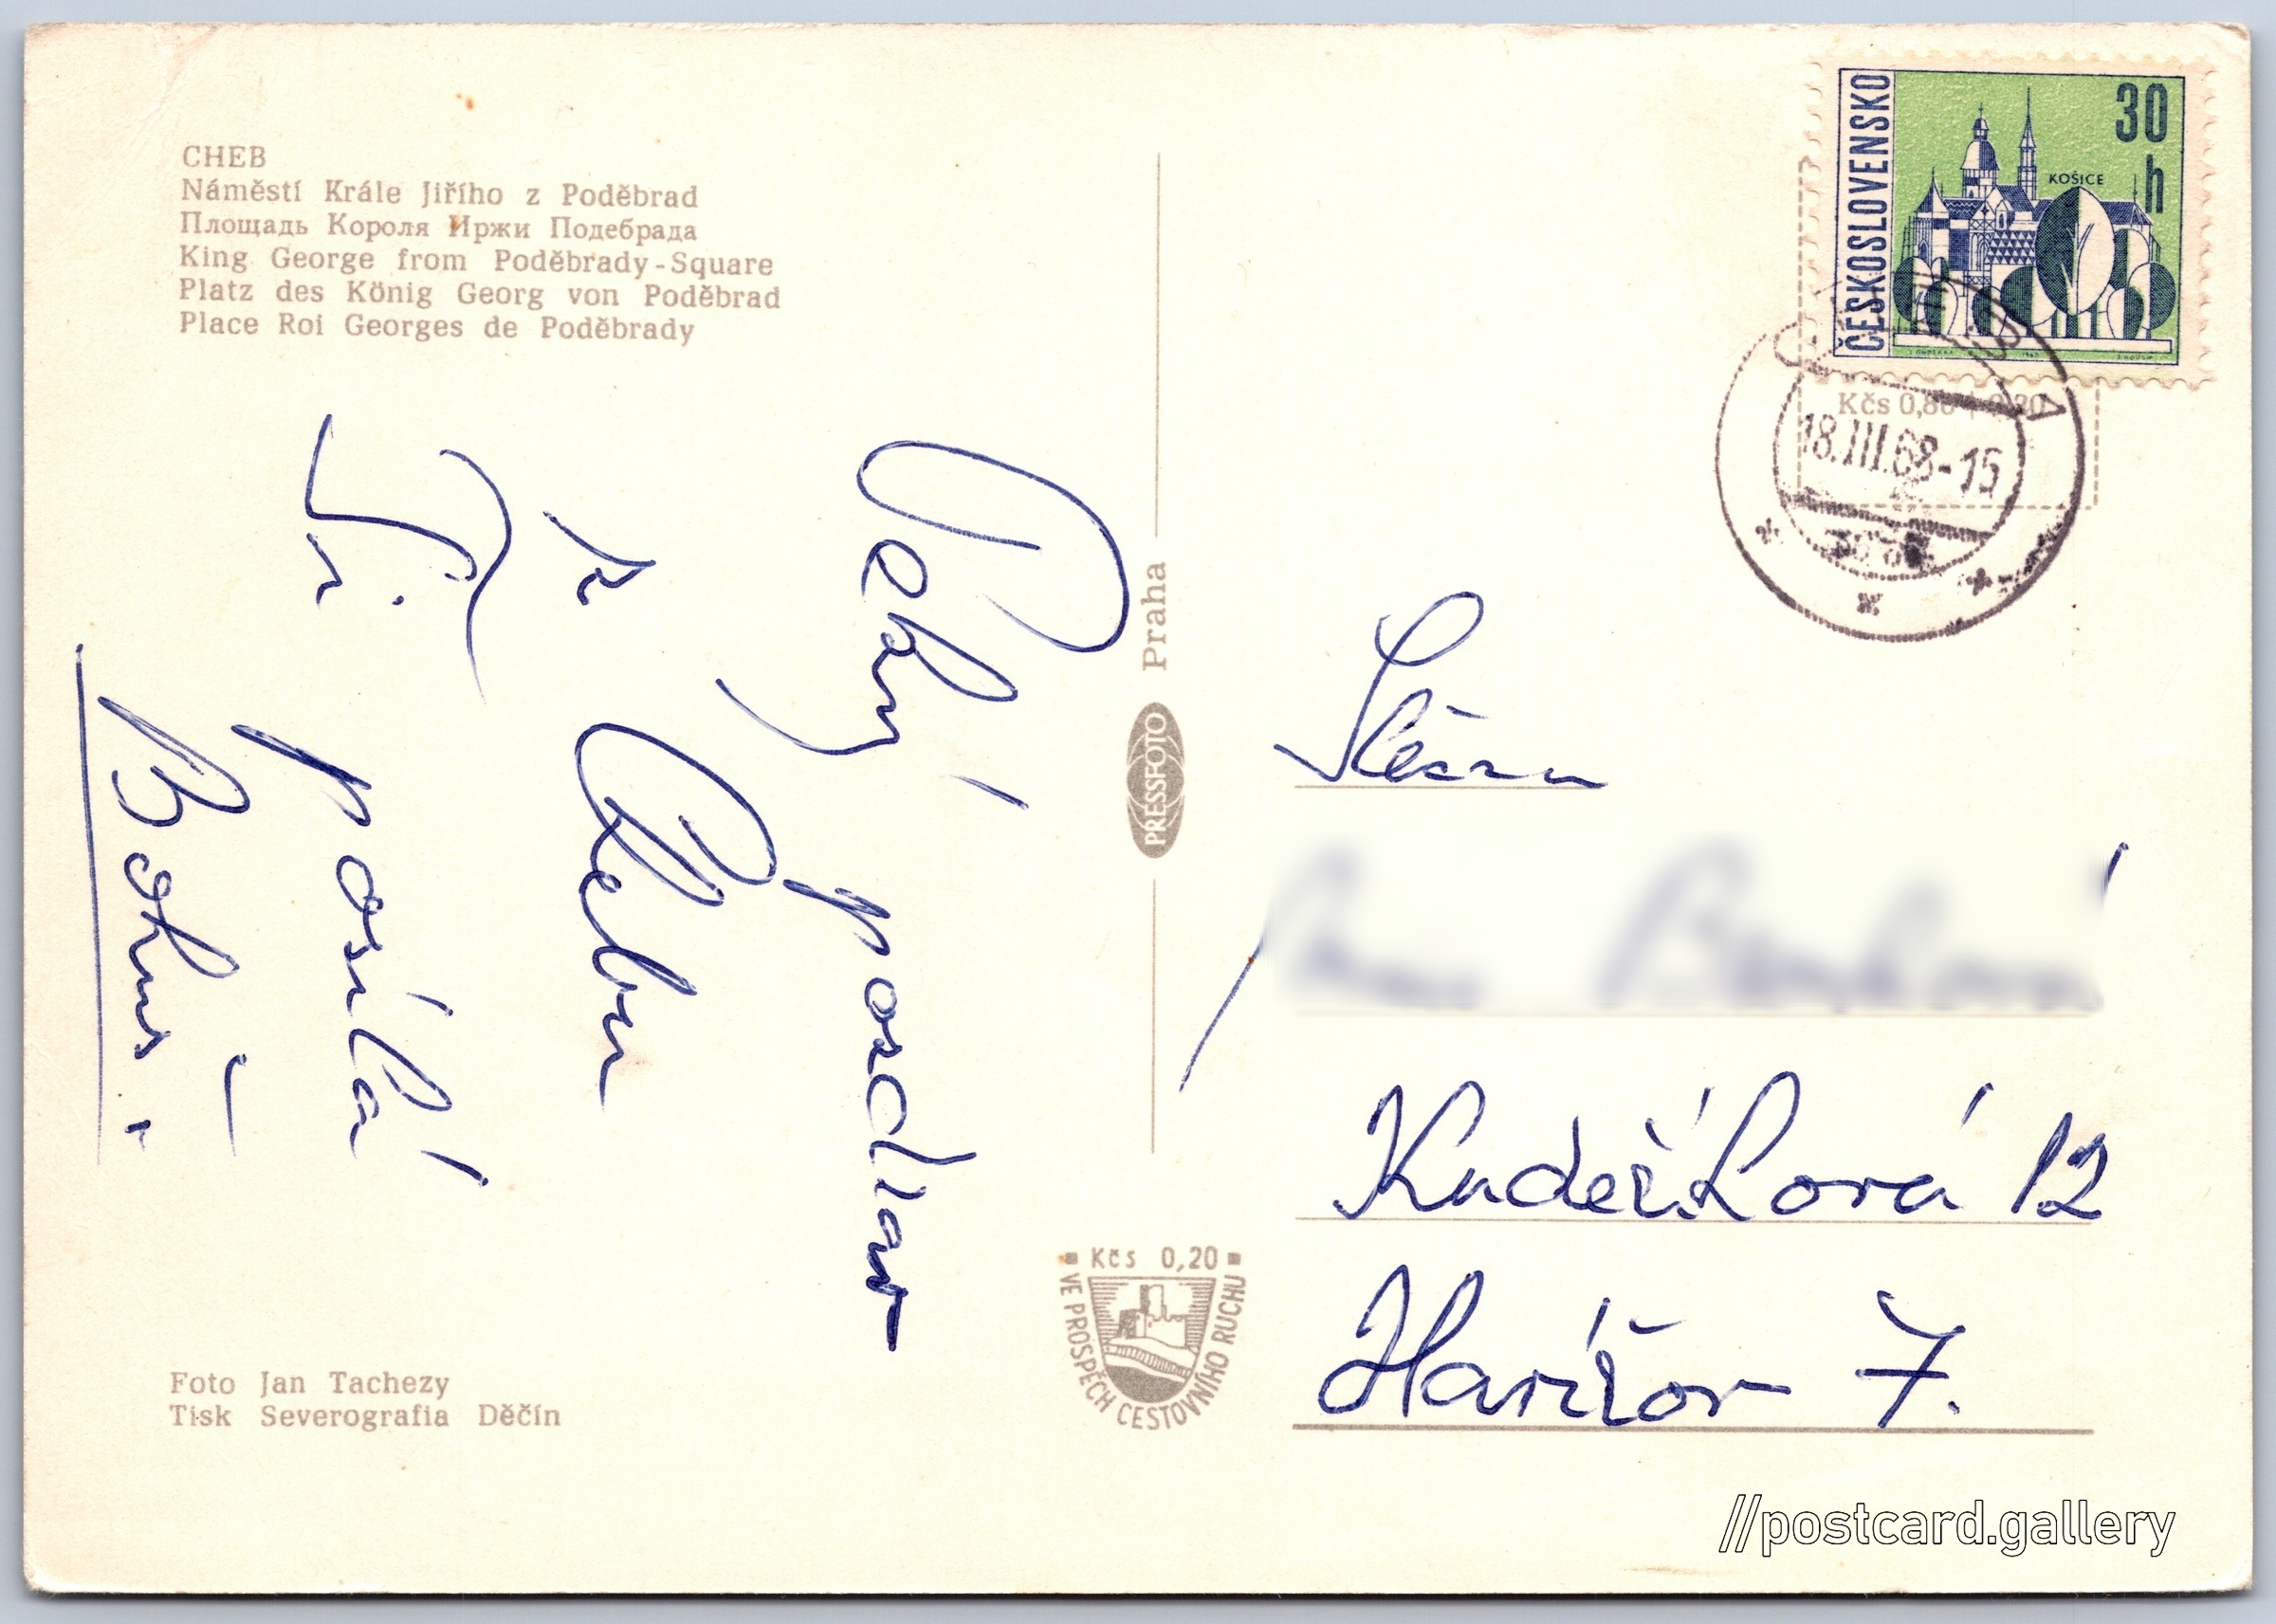 CHEB
Náměstí Krále Jiřího z Poděbrad
Площадь Короля Иржи Подебрада
King George from Poděbrady-Square
Platz des König Georg von Poděbrad
Place Roi Georges de Poděbrady
Pěkný pozdrav
z Chebu
Ti posílá
Bohuš
Foto Jan Tachezy
Tisk Severografia Děčín
PRESSFOTO Praha
Kčs 0,20
VE PROSPĚCH CESTOVNÍHO RUCHU
ČESKOSLOVENSKO
30 h
KOŠICE
Kčs 0,80
18.III.68-15
Slečna
Kudeříková 12
Havířov 7.
//postcard.gallery